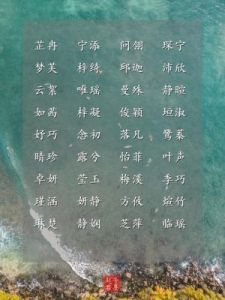 芷冉 宁添 问翎 琛宁
梦芙 梓绮 邱迦 沛欣
云絮 唯瑶 曼殊 静暄
如茜 梓凝 俊颖 垣淑
妤巧 念初 落凡 鸳蓁
晴珍 露兮 怡菲 叶声
卓妍 莹玉 梅溪 季巧
瑾涵 妍静 方攸 煊竹
琳楚 静娴 芝萍 临瑶